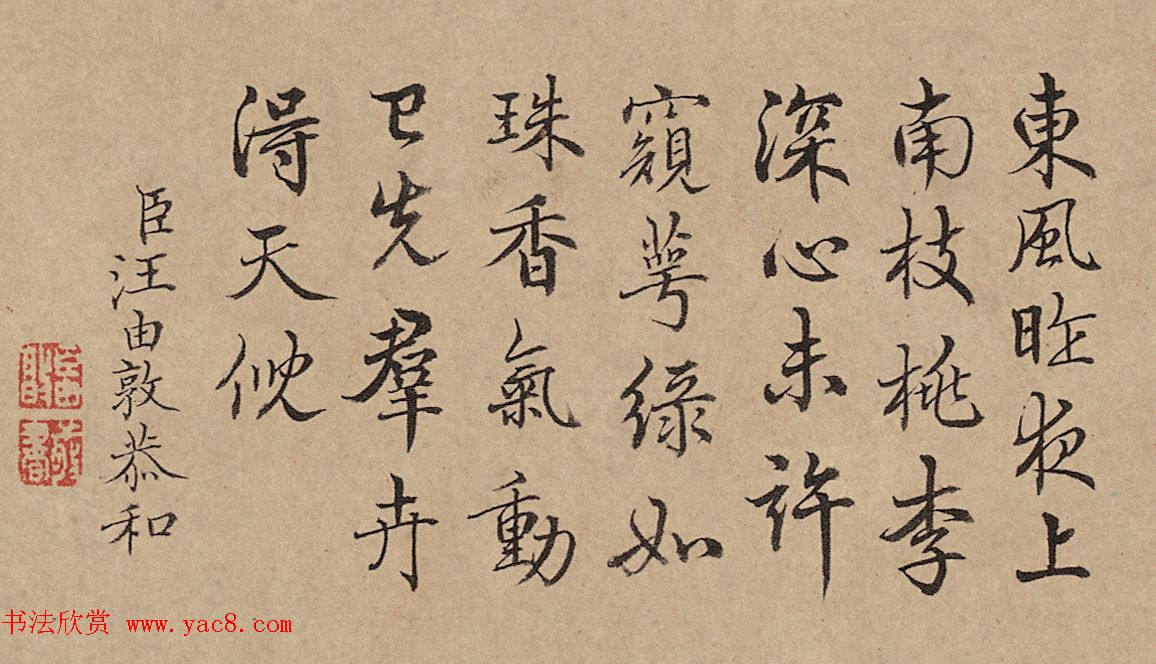 東風昨夜上
南枝桃李
深心未許
窺萼綠如
珠香氣動
已先羣卉
得天倪
臣汪由敦恭和
书法欣赏 www.yac8.com